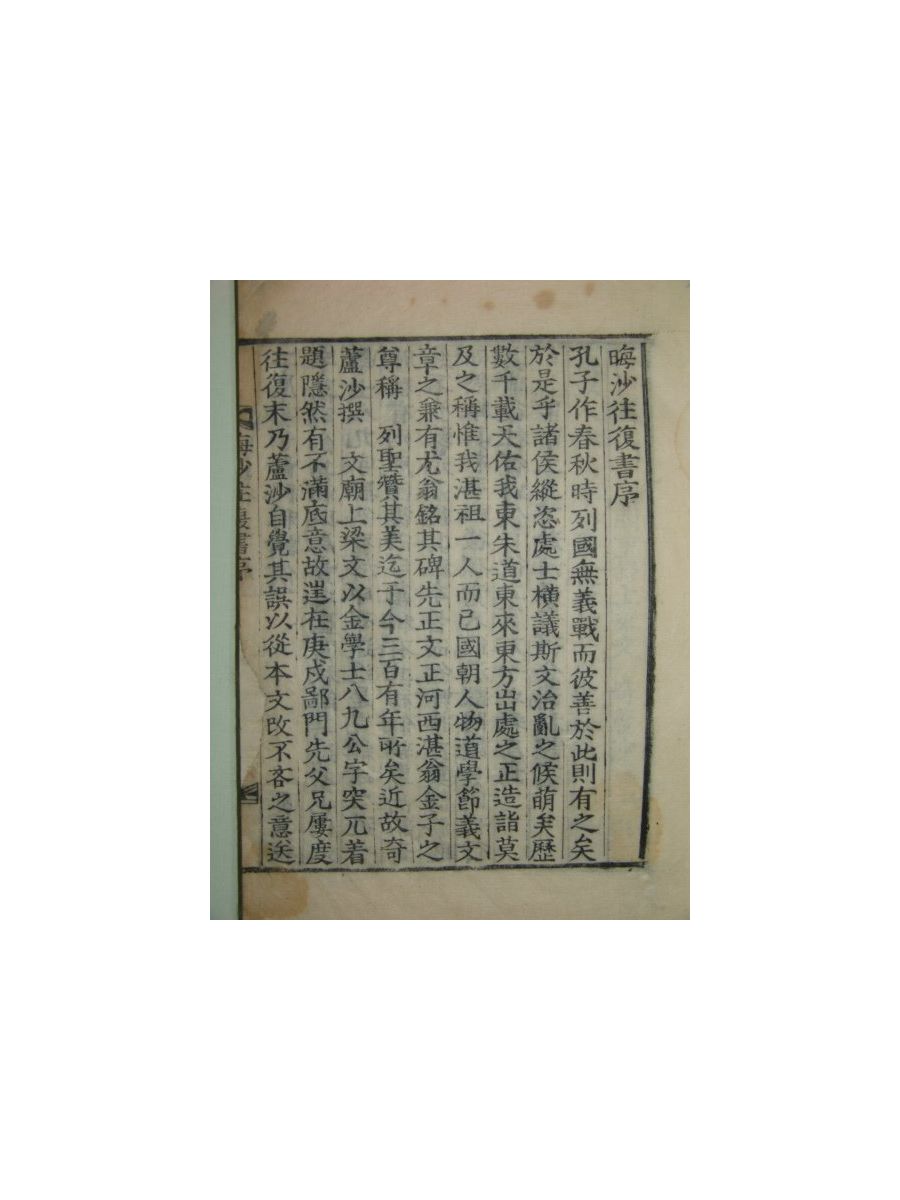 晦沙往復書序
孔子作春秋時列國無義戰而彼善於此則有之矣
於是乎諸侯縱恣處士橫議斯文治亂之候萌矣歷
數千載天佑我東朱道東來東方出處之正造詣莫
及之稱惟我湛祖一人而已國朝人物道學節義文
章之兼有尤翁銘其碑先正文正河西湛翁金子之
尊稱 列聖贊其美迄于今三百有年所矣近故奇
蘆沙撰 文廟上梁文以金學士八九公字突兀着
題隱然有不滿底意故迬在庚戍鄙門先父兄屢度
往復末乃蘆沙自覺其誤以從本文改不吝之意送
晦沙往復書序